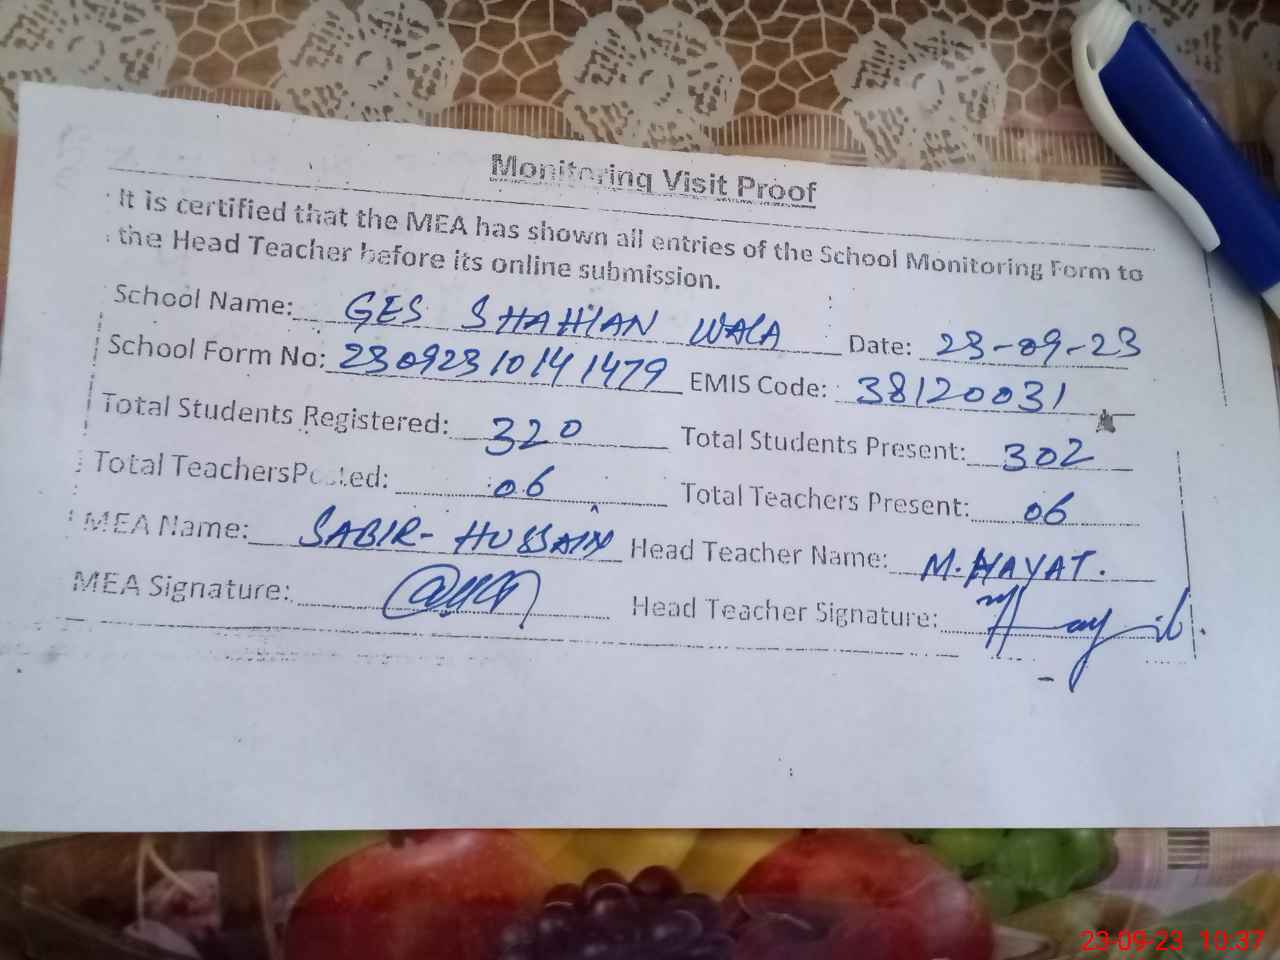 Monitoring Visit Proof
It is certified that the MEA has shown all entries of the School Monitoring Form to
the Head Teacher before its online submission.
School Name: GES SHAHIAN WALA Date: 23-09-23
School Form No: 23092310141479 EMIS Code: 38120031
Total Students Registered: 320 Total Students Present: 302
Total TeachersPosted: 06 Total Teachers Present: 06
MEA Name: SABIR-HUSSAIN Head Teacher Name: M.HAYAT.
MEA Signature: Head Teacher Signature:
23-09-23 10:37